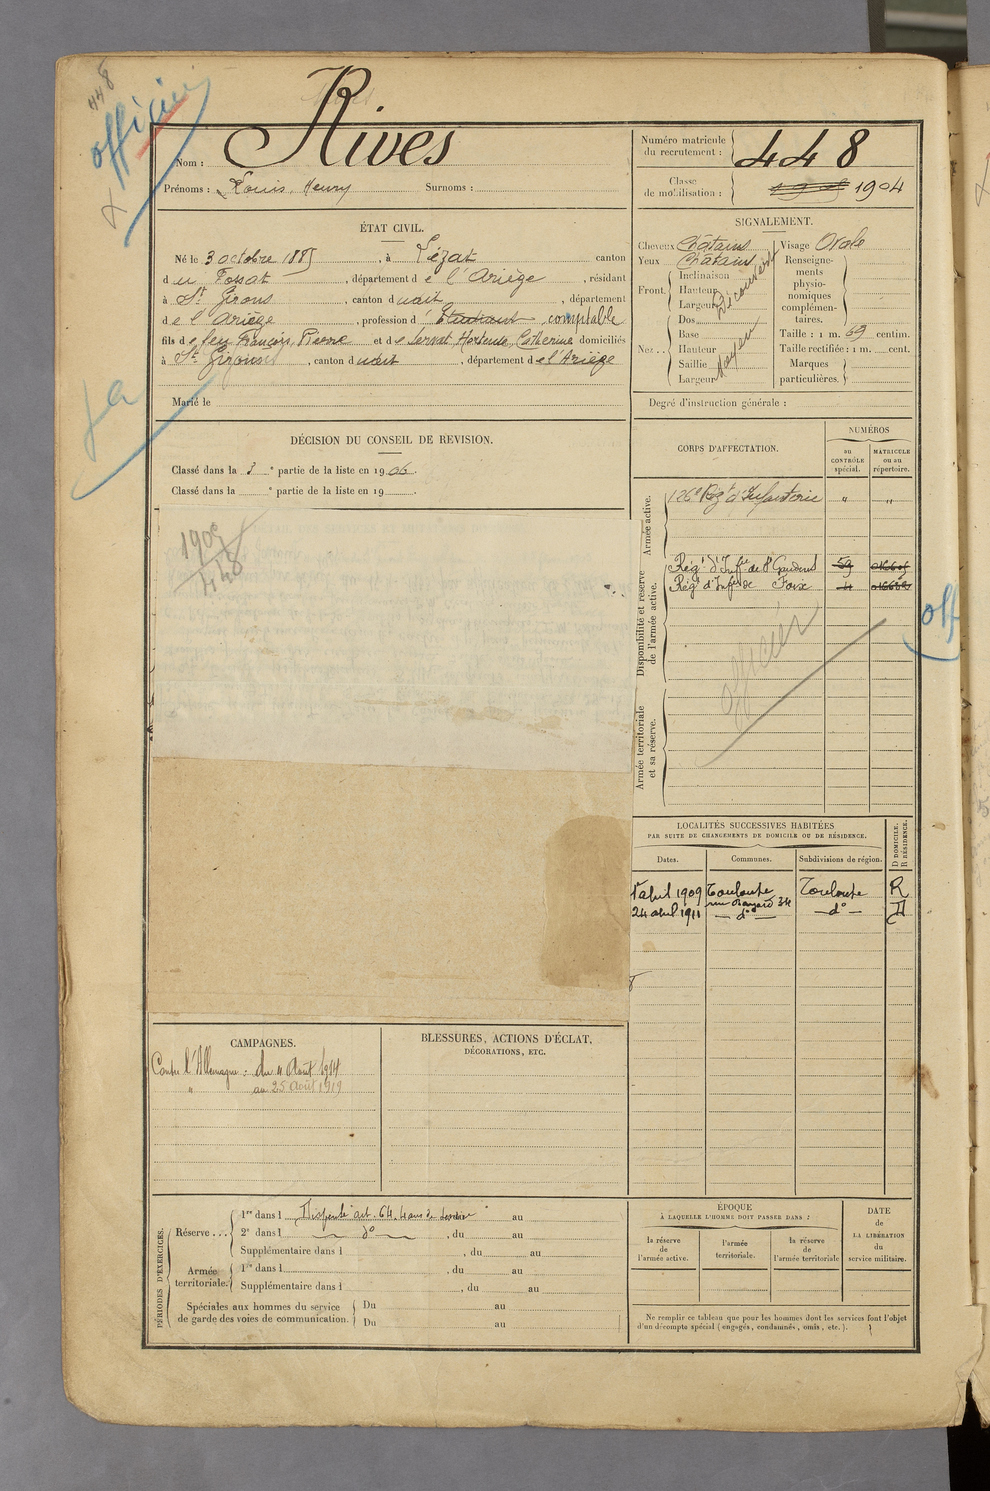 448
officier
Rives
Nom :
Prénoms : Louis, Henry Surnoms :
Numéro matricule du recrutement : 448
Classe de mobilisation : 1904
ÉTAT CIVIL.
Né le 3 octobre 1885, à Lézat canton
du Fossat, département de l'Ariège, résidant
à St Girons, canton dudit, département
de l'Ariège, profession d'étudiant comptable
fils de feu François, Pierre et de Servat Hortense, Catherine domiciliés
à St Girons, canton dudit, département de l'Ariège
Marié le
SIGNALEMENT.
Cheveux Châtains
Yeux Châtain
Front. Inclinaison
Hauteur
Largeur
Découvert
Nez .. Dos
Base
Hauteur
Saillie
Largeur
Moyen
Visage Ovale
Renseignements physionomiques complémentaires.
Taille : 1 m. 69 centim.
Taille rectifiée : 1 m. cent.
Marques particulières.
Degré d'instruction générale :
DÉCISION DU CONSEIL DE REVISION.
Classé dans la 3e partie de la liste en 1906.
Classé dans la e partie de la liste en 19
1905
448
CORPS D'AFFECTATION.
NUMÉROS
au CONTRÔLE spécial.
MATRICULE ou au répertoire.
Armée active.
126e Régt d'Infanterie " "
Disponibilité et réserve de l'armée active.
Régt d'Infie de St Gaudens 59
Régt d'Infie de Foix
officier
off
Armée territoriale et sa réserve.
LOCALITÉS SUCCESSIVES HABITÉES
PAR SUITE DE CHANGEMENTS DE DOMICILE OU DE RÉSIDENCE.
D DOMICILE. R RÉSIDENCE.
Dates. Communes. Subdivisions de région.
1er abril 1909 Toulouse Toulouse R
rue 34
24 abril 1911 — do — — do — D
CAMPAGNES.
Contre l'Allemagne : du 11 Août 1914
" au 25 Août 1919
BLESSURES, ACTIONS D'ÉCLAT,
DÉCORATIONS, ETC.
PÉRIODES D'EXERCICES.
Réserve ... 1re dans l Dispensé art. 64. 4 ans de service au
2e dans l do , du au
Supplémentaire dans l , du au
Armée territoriale. 1re dans l , du au
Supplémentaire dans l , du au
Spéciales aux hommes du service de garde des voies de communication. Du au
Du au
ÉPOQUE
À LAQUELLE L'HOMME DOIT PASSER DANS :
la réserve de l'armée active.
l'armée territoriale.
la réserve de l'armée territoriale
DATE de LA LIBÉRATION du service militaire.
Ne remplir ce tableau que pour les hommes dont les services font l'objet
d'un décompte spécial (engagés, condamnés, omis, etc.).